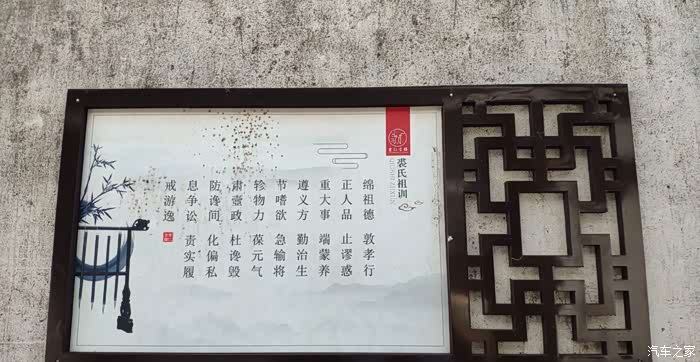 裘氏祖训
QIUSHI ZUXUN
绵祖德 敦孝行
正人品 止谬惑
重大事 端蒙养
遵义方 勤治生
节嗜欲 急输将
轸物力 葆元气
肃壸政 杜谗毁
防谗间 化偏私
息争讼 责实履
戒游逸
汽车之家